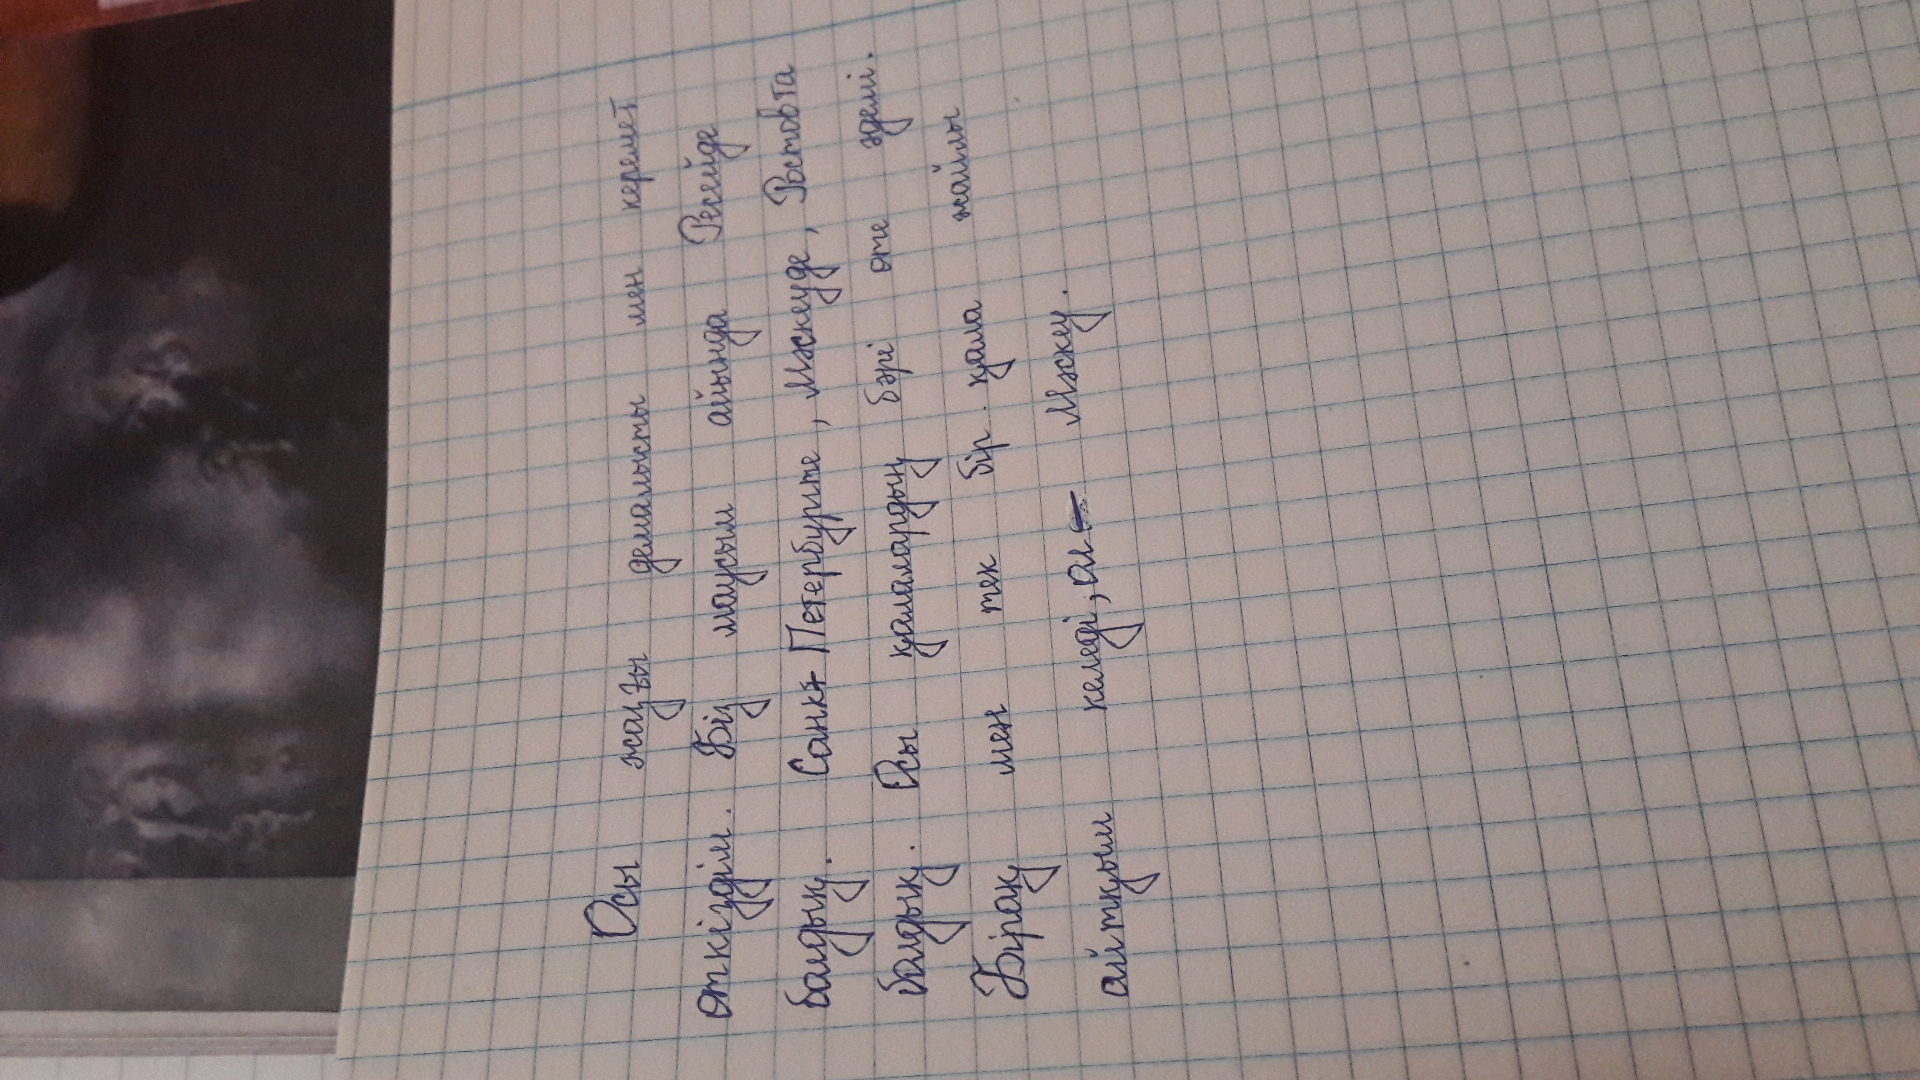 Осы жазғы демалысты мен керемет
өткіздім. Біз маусым айында Ресейде
болдық. Санкт-Петербургте, Мәскеуде, Ростовта
болдық. Осы қалалардың бәрі өте әдемі.
Бірақ мен тек бір қала жайлы
айтқым келеді, ол - Мәскеу.